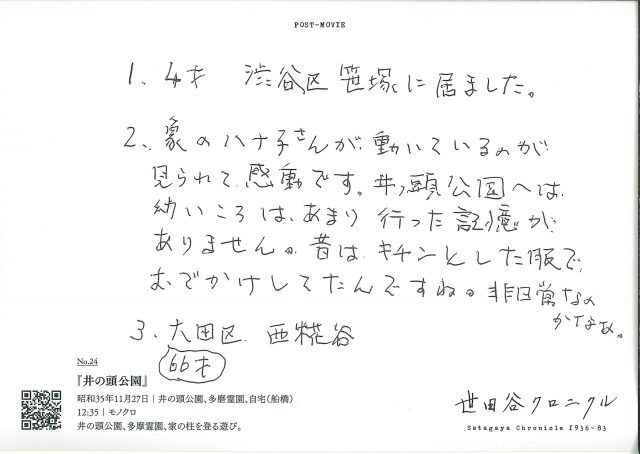 POST-MOVIE
1、4才 渋谷区 笹塚に居ました。
2、象のハナ子さんが、動いているのが
見られて感動です。井ノ頭公園へは
幼いころは、あまり行った記憶が
ありません。昔は、キチンとした服で
おでかけしてたんですね。非日常なの
かなあ。
3、大田区 西糀谷
66才
No.24
『井の頭公園』
昭和35年11月27日｜井の頭公園、多磨霊園、自宅（船橋）
12:35｜モノクロ
井の頭公園、多摩霊園、家の柱を登る遊び。
世田谷クロニクル
Setagaya Chronicle 1936-83